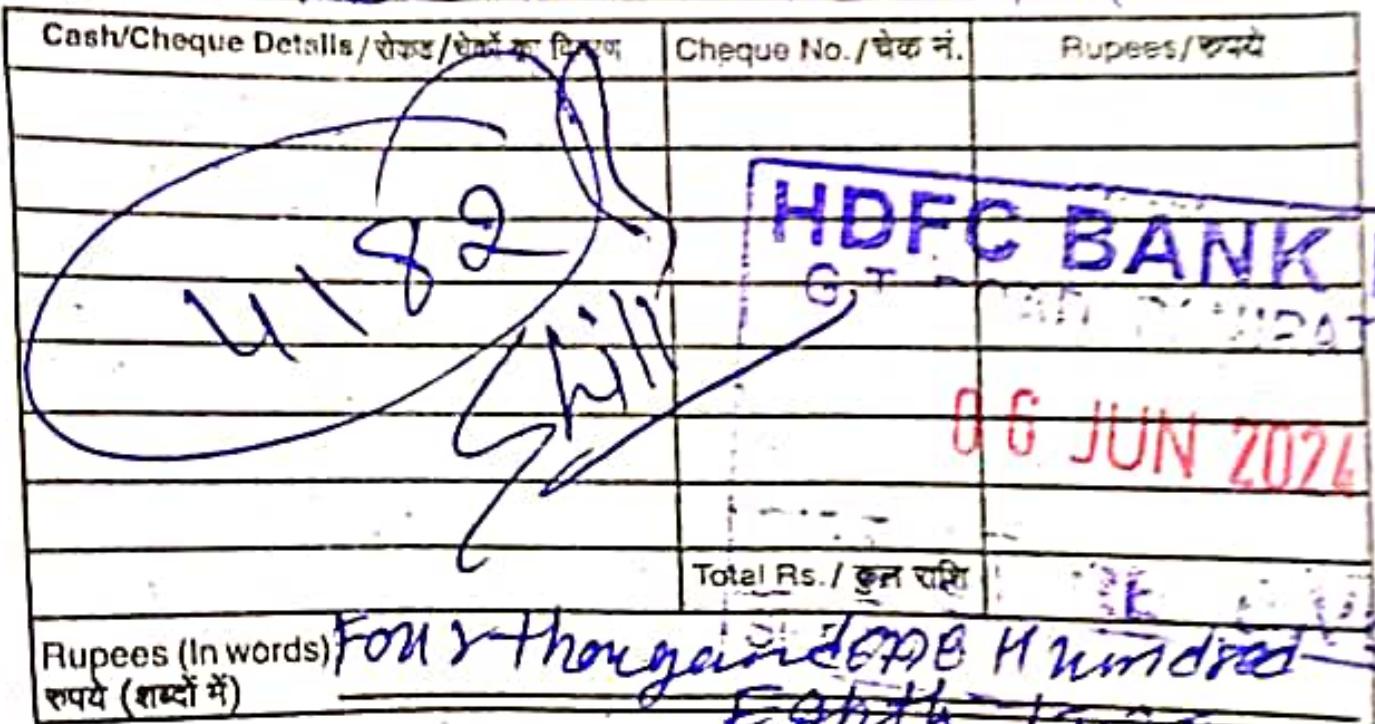 Cash/Cheque Details/रोकड/चेकों का विवरण Cheque No./चेक नं. Rupees/रुपये
4182
HDFC BANK
G.T.
06 JUN 2024
Total Rs./ कुल राशि
Rupees (In words) Four thousand one Hundred
रुपये (शब्दों में)